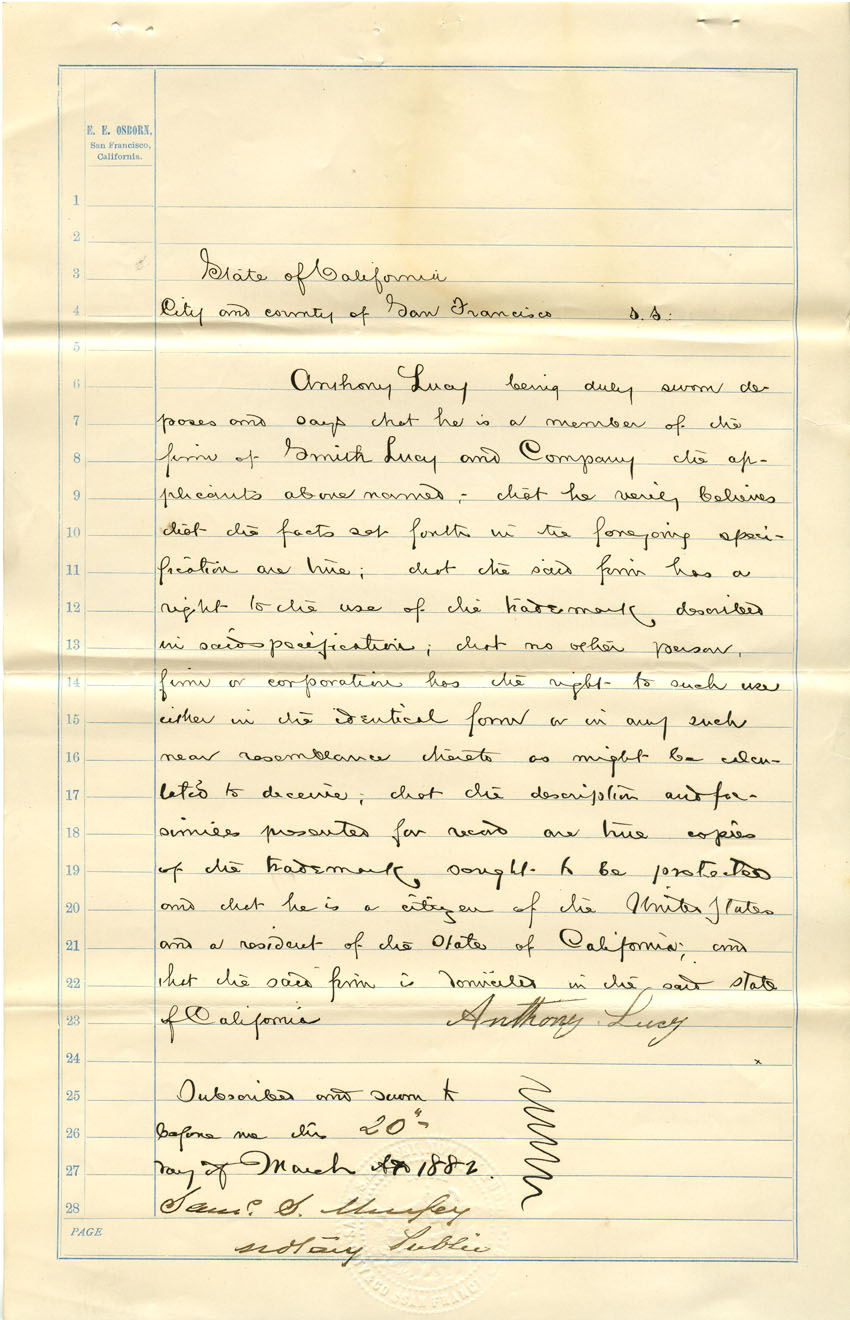 E. E. OSBORN,
San Francisco,
California.
1
2
3 State of California
4 City and county of San Francisco s.s.:
5
6 Anthony Lucy being duly sworn de-
7 poses and says that he is a member of the
8 firm of Smith Lucy and Company the ap-
9 plicants above named; that he verily believes
10 that the facts set forth in the foregoing speci-
11 fication are true; that the said firm has a
12 right to the use of the trademark described
13 in said specification; that no other person,
14 firm or corporation has the right to such use
15 either in the identical form or in any such
16 near resemblance thereto as might be calcu-
17 lated to deceive; that the description and fac-
18 similes presented for record are true copies
19 of the trademark sought to be protected
20 and that he is a citizen of the United States
21 and a resident of the State of California; and
22 that the said firm is domiciled in the said state
23 of California Anthony Lucy
24
25 Subscribed and sworn to
26 before me this 20th
27 day of March AD 1882.
28 Saml. S.
PAGE
Notary Public